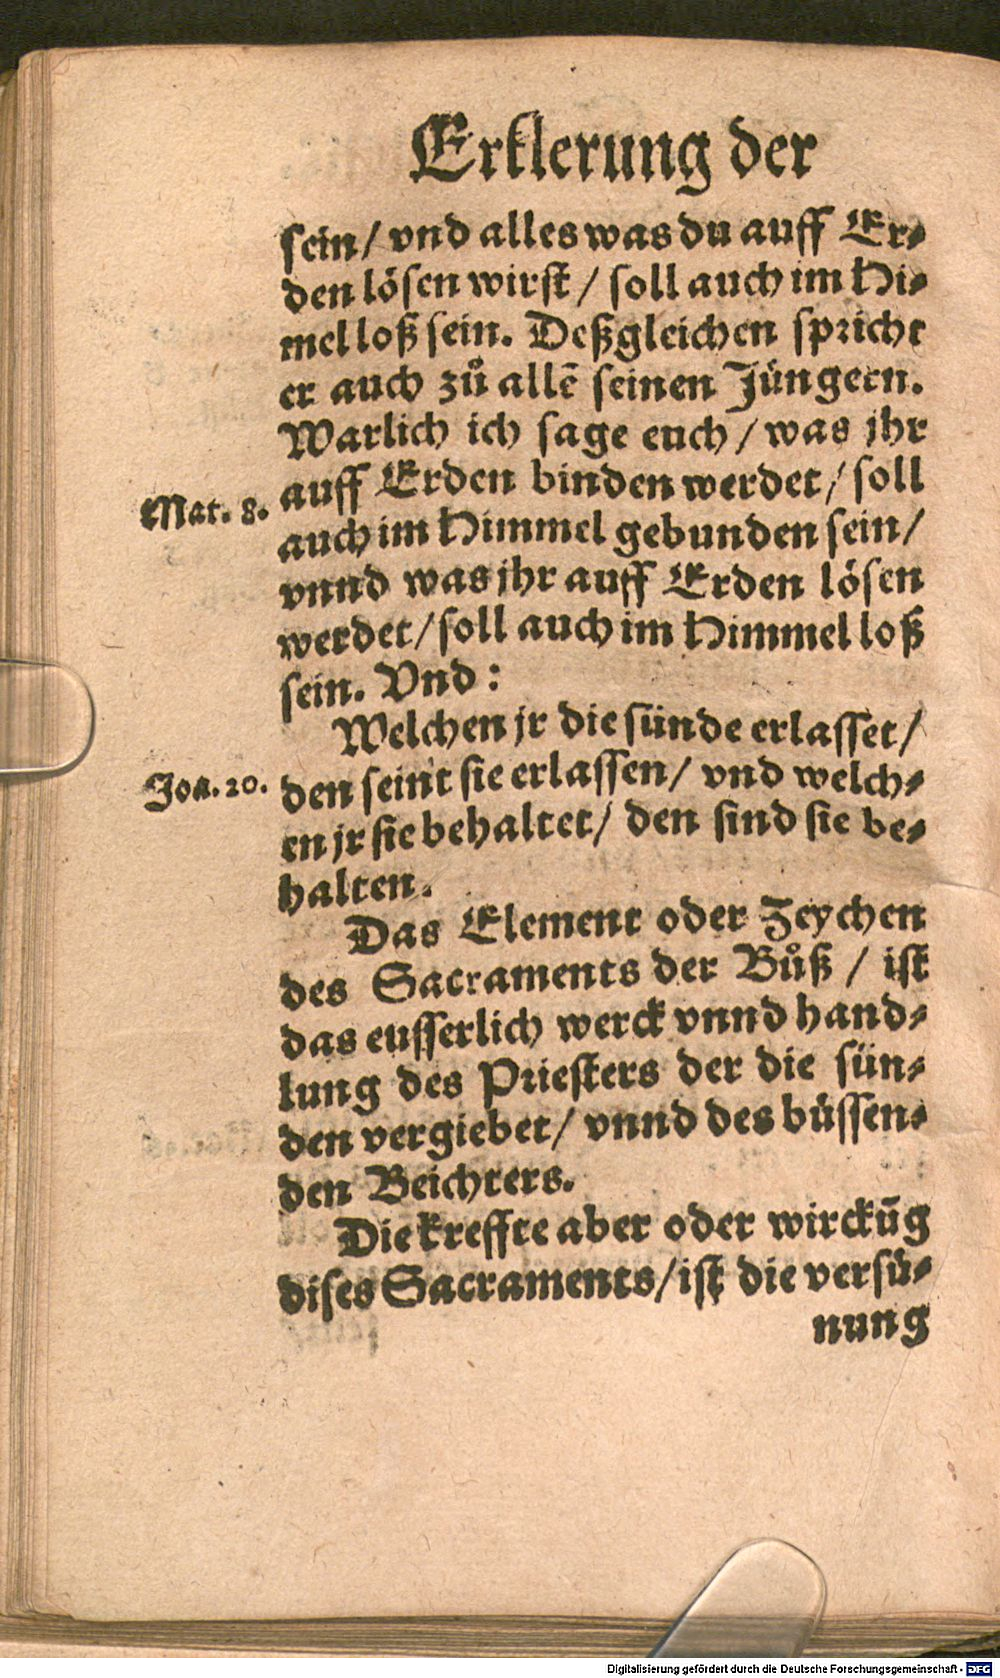 Erklerung der
sein/ vnd alles was du auff Er⸗
den lösen wirst / soll auch im Hi⸗
mel loß sein. Deßgleichen spricht
er auch zů allē seinen Jüngern.
Warlich ich sage euch / was jhr
auff Erden binden werdet / soll
Mat. 8.
auch im Himmel gebunden sein/
vnnd was jhr auff Erden lösen
werdet / soll auch im Himmel loß
sein. Vnd :
Welchen jr die sünde erlasset/
Joã. 20.
den seint sie erlassen/ vnd welch⸗
en jr sie behaltet/ den sind sie be⸗
halten.
Das Element oder Zeychen
des Sacraments der Bůß / ist
das eusserlich werck vnnd hand⸗
lung des Priesters der die sün⸗
den vergiebet/ vnnd des büssen⸗
den Beichters.
Die kreffte aber oder wirckūg
dises Sacraments/ ist die versü⸗
nung
Digitalisierung gefördert durch die Deutsche Forschungsgemeinschaft - DFG